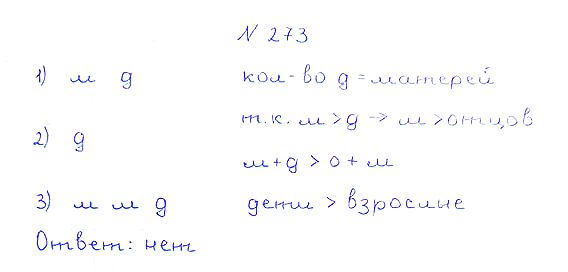 N 273
1) м д кол-во д = матерей
т.к. м > д -> м > отцов
2) д
м + д > о + м
3) м м д дети > взрослые
Ответ: нет